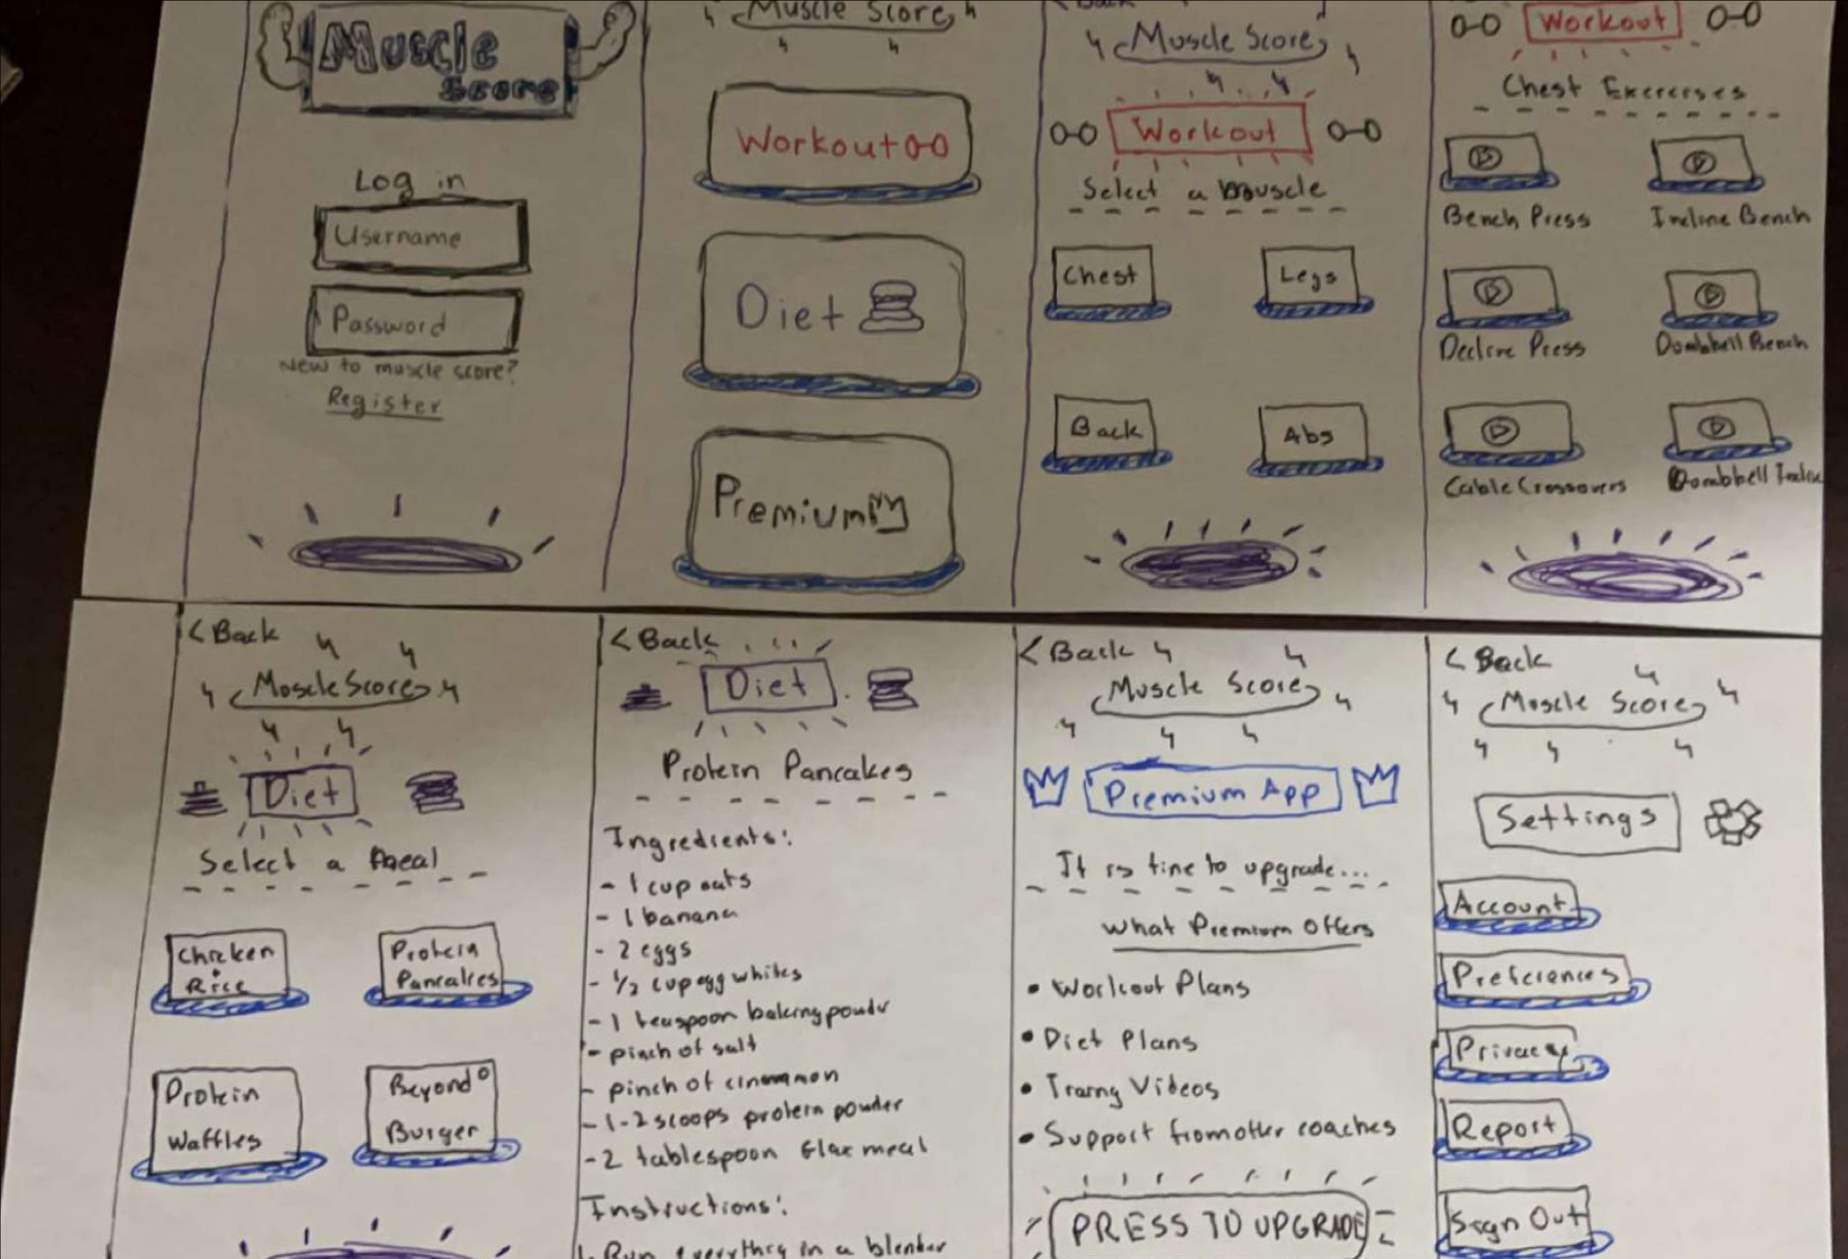 Muscle
Score
Log in
Username
Password
New to muscle score?
Register
Muscle Score
Workout
Diet
Premium
Muscle Score
Workout
Select a Muscle
Chest
Legs
Back
Abs
Workout
Chest Excercises
Bench Press
Incline Bench
Decline Press
Dombbell Bench
Cable Crossovers
Dombbell Incline
< Back
Moscle Score
Diet
Select a Meal
Chicken
Rice
Protein
Pancakes
Protein
Waffles
Beyond
Burger
< Back
Diet
Protein Pancakes
Ingredients:
- 1 cup oats
- 1 banana
- 2 eggs
- 1/2 cup egg whites
- 1 teaspoon baking powdr
- pinch of salt
- pinch of cinammon
- 1-2 scoops protein powder
- 2 tablespoon flax meal
Instructions:
1. Run everything in a blender
< Back
Muscle Score
Premium App
It is time to upgrade...
What Premium Offers
• Workout Plans
• Diet Plans
• Traing Videos
• Support from other coaches
PRESS TO UPGRADE
< Back
Moscle Score
Settings
Account
Preferences
Privacy
Report
Sign Out